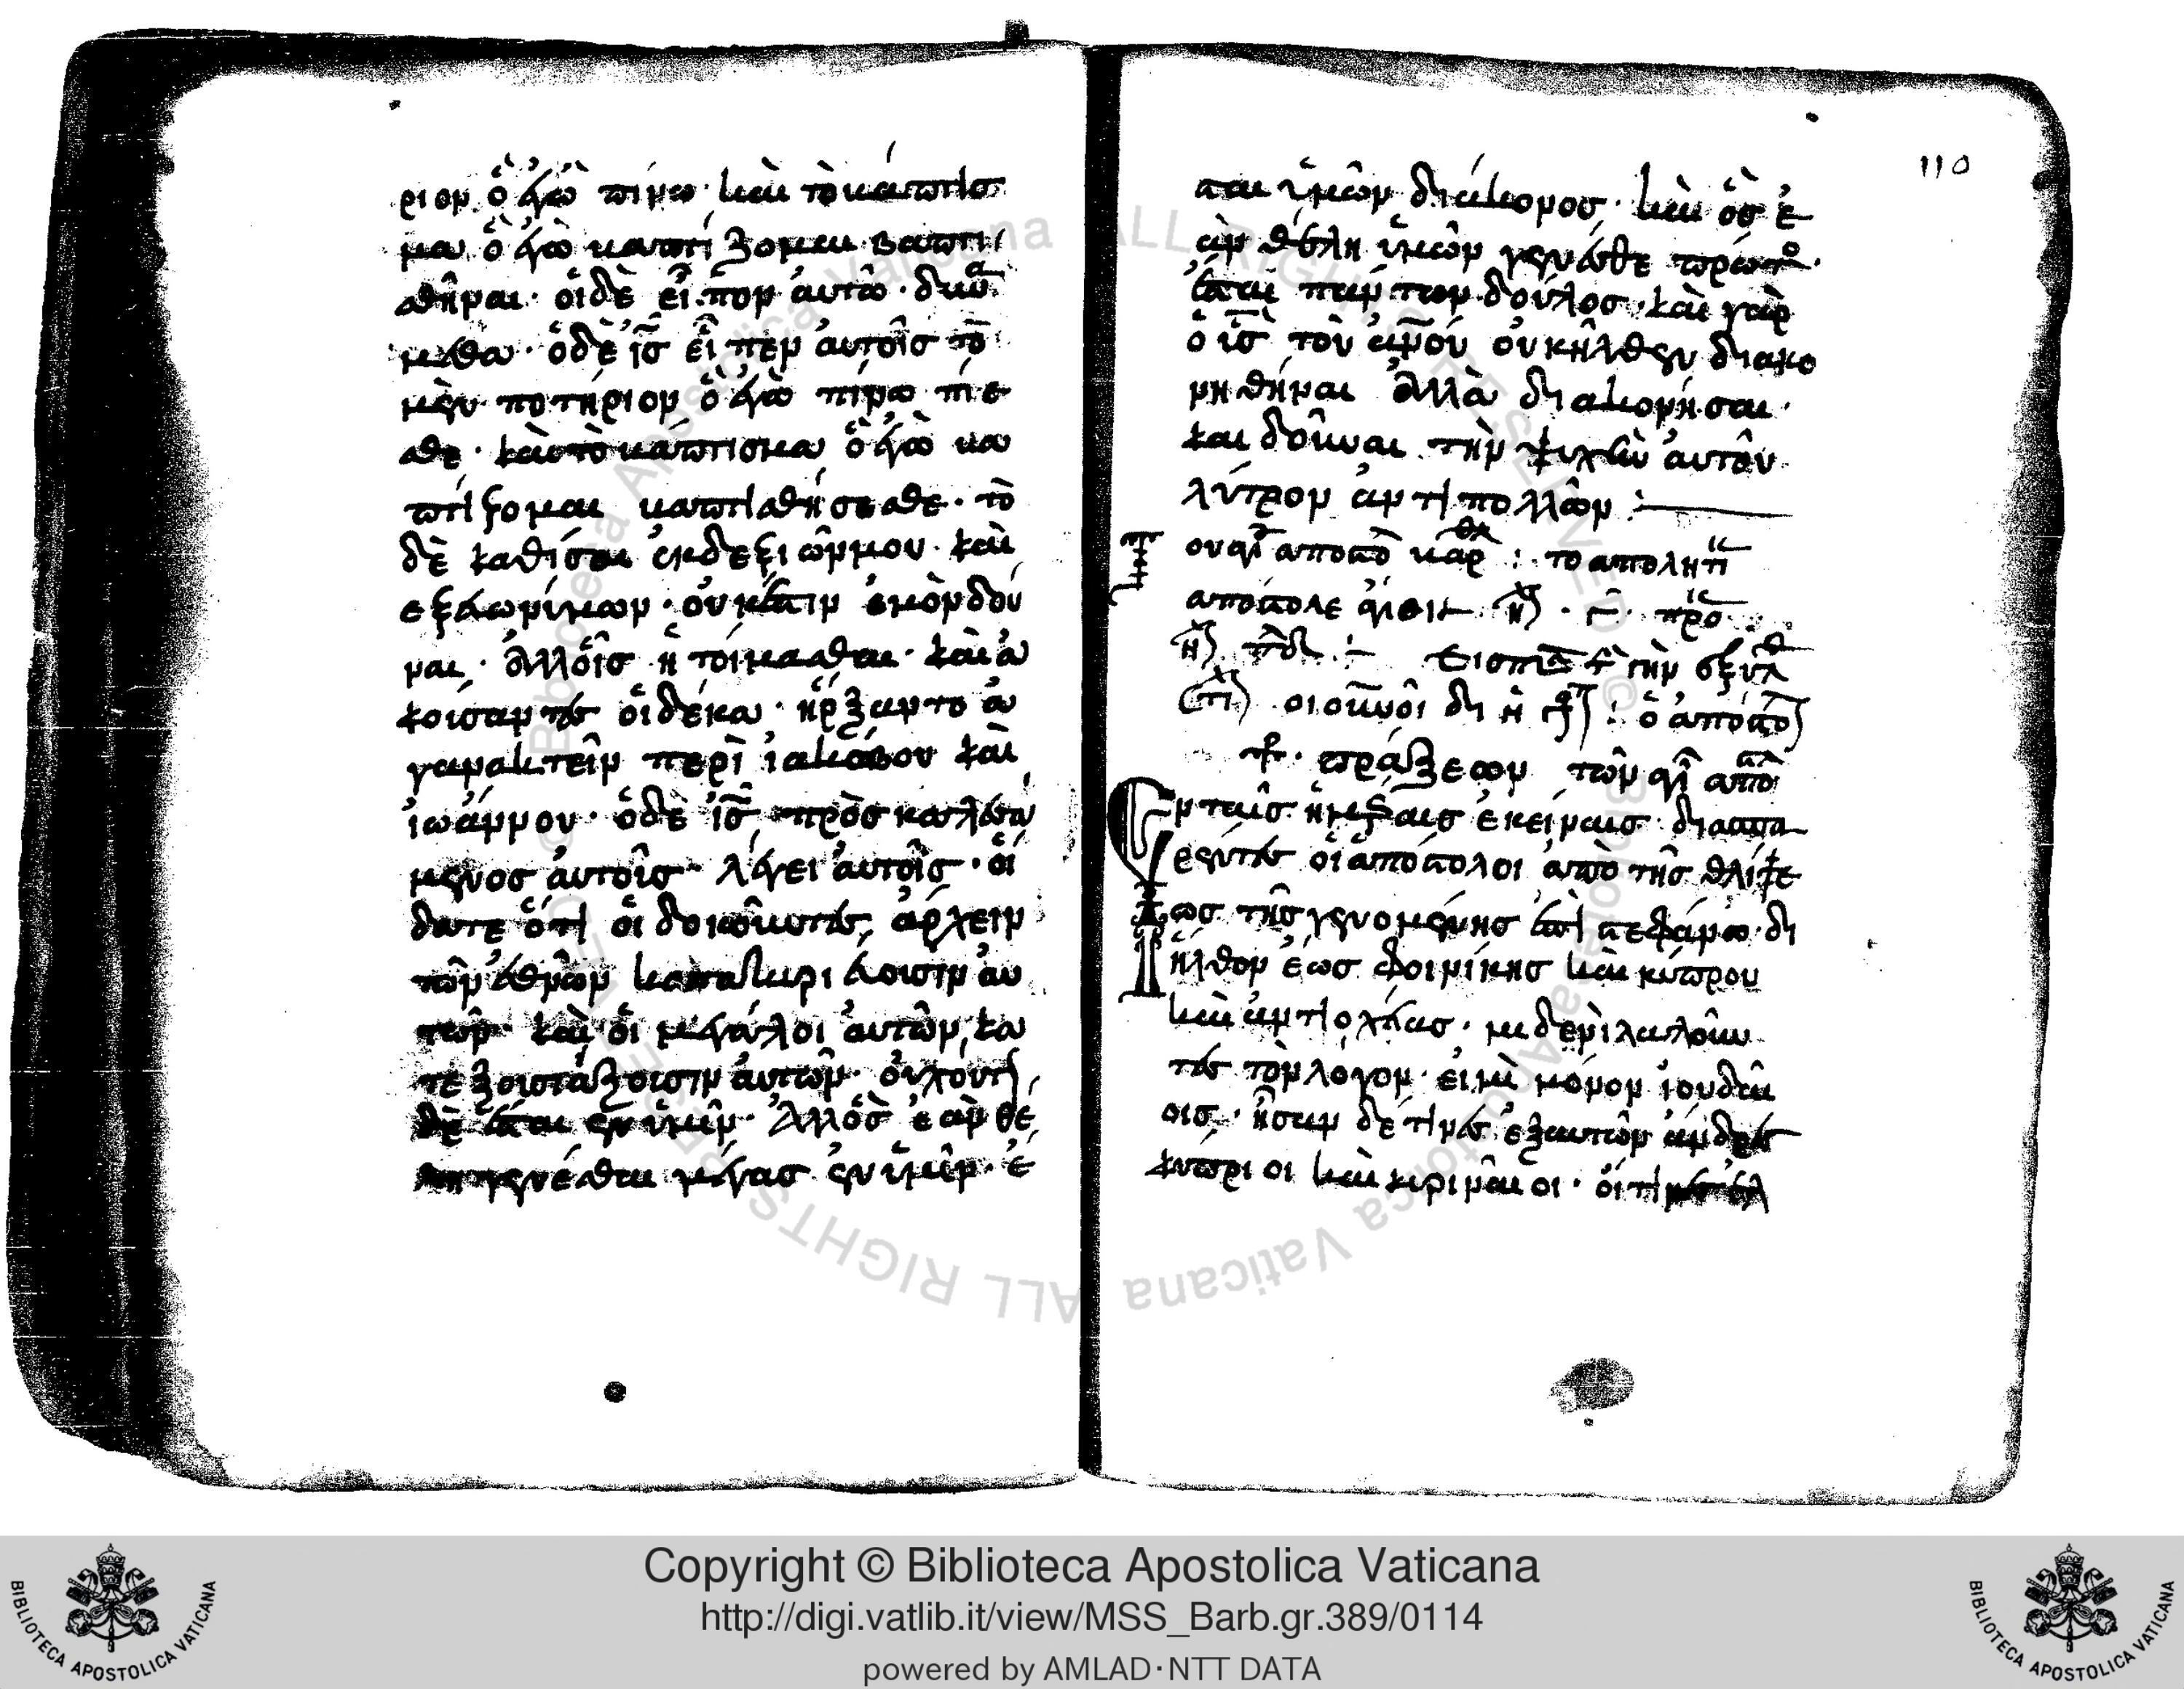 ριον ὃ ἐγὼ πίνω· καὶ τὸ βάπτισ
μα ὃ ἐγὼ βαπτίζομαι βαπτι
σθῆναι· οἱ δὲ εἶπον αὐτῶ· δυνά
μεθα· ὁ δὲ ἰς εἶπεν αὐτοῖς τὸ
μὲν ποτήριον ὃ ἐγὼ πίνω πίε
σθε· καὶ τὸ βάπτισμα ὃ ἐγὼ βα
πτίζομαι βαπτισθήσεσθε· τὸ
δὲ καθίσαι ἐκ δεξιῶν μου καὶ
ἐξ εὐωνύμων· οὐκ ἔστιν ἐμὸν δοῦ
ναι· ἀλλ' οἷς ἡτοίμασται· καὶ ἀ
κούσαντες οἱ δέκα· ἤρξαντο ἀ
γανακτεῖν περὶ ἰακώβου καὶ
ἰωάννου· ὁ δὲ ἰς προσκαλεσά
μενος αὐτοῖς· λέγει αὐτοῖς· οἴ
δατε ὅτι οἱ δοκοῦντες ἄρχειν
τῶν ἐθνῶν κατακυριεύουσιν αὐ
τῶν· καὶ οἱ μεγάλοι αὐτῶν κα
τεξουσιάζουσιν αὐτῶν· οὐχ οὕτω
δὲ ἔσται ἐν ὑμῖν· ἀλλ' ὃς ἐὰν θέ
λη γενέσθαι μέγας ἐν ὑμῖν· ἔ
110
σται ὑμῶν διάκονος· καὶ ὃς ἐ
ὰν θέλη ὑμῶν γενέσθε πρῶτος·
ἔσται πάντων δοῦλος· καὶ γὰρ
ὁ ἰς τοῦ ἀνου οὐκ ἦλθεν διακο
νηθῆναι ἀλλὰ διακονῆσαι·
καὶ δοῦναι τὴν ψυχὴν αὐτοῦ
λύτρον ἀντὶ πολλῶν :
του αποστο βαρ : το απολητι
αποστολε
οἱ οὐνοὶ δι ἡ : ὁ αποστο
πράξεων τῶν ἁγί ἀπο
Εν ταῖς ἡμέραις ἐκείναις διασπα
ρέντες οἱ ἀπόστολοι ἀπὸ τῆς θλίψε
ως τῆς γενομένης ἐπὶ στεφάνω· δι
ῆλθον ἕως φοινίκης καὶ κύπρου
καὶ ἀντιοχείας· μηδενὶ λαλοῦν
τες τὸν λόγον· εἰ μὴ μόνον ἰουδαί
οις· ἦσαν δέ τινες ἐξ αυτῶν ἄνδρες
κύπριοι καὶ κυριναῖοι· οἵτινες ἐλ
Copyright © Biblioteca Apostolica Vaticana
http://digi.vatlib.it/view/MSS_Barb.gr.389/0114
powered by AMLAD·NTT DATA
BIBLIOTECA APOSTOLICA VATICANA
BIBLIOTECA APOSTOLICA VATICANA